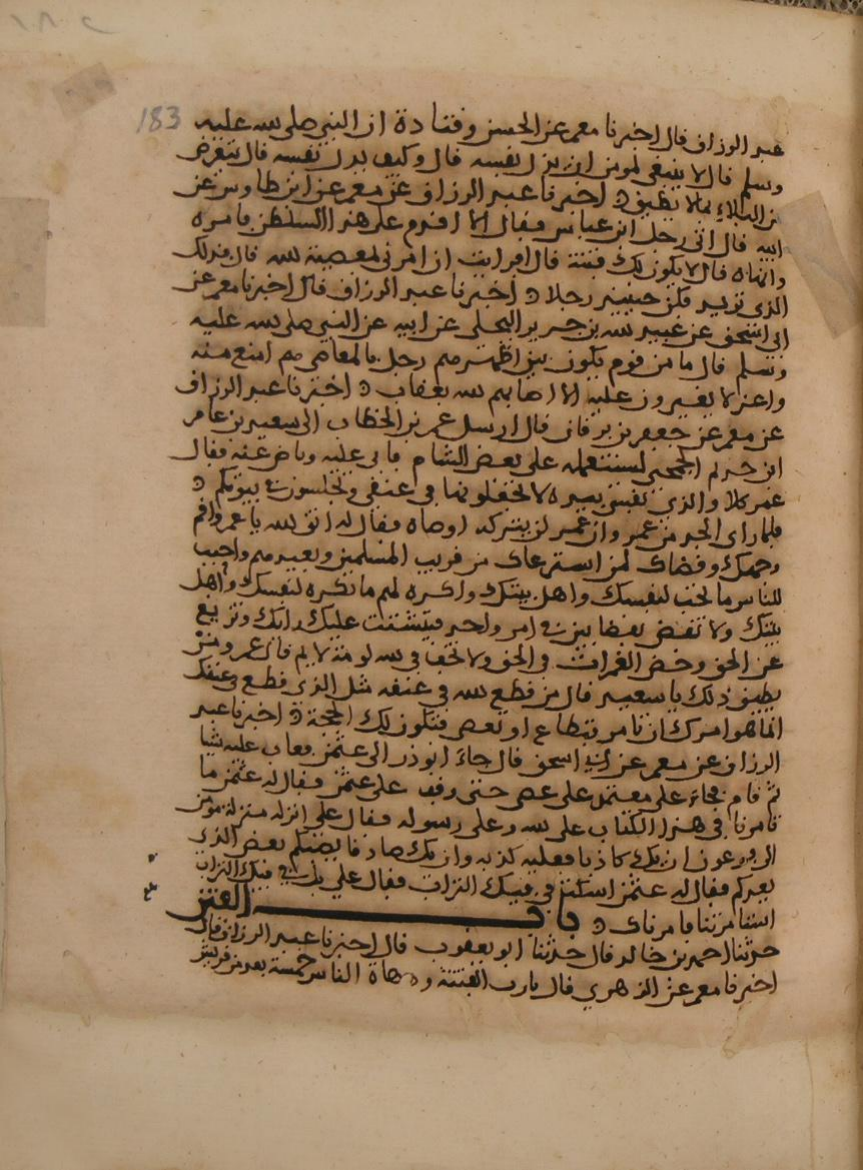 183
عبد الرزاق قال اخبرنا معمر عن الحسن وقتادة ان النبي صلى الله عليه
وسلم قال لا ينبغي لمومن ان يذل نفسه قال وكيف يذل نفسه قال يتعرض
من البلاء بما لا يطيق اخبرنا عبد الرزاق عن معمر عن ابن طاوس عن
ابيه قال اتى رجل ابن عباس فقال الا اقوم على هذا السلطن فامره
وانهاه قال لا يكون لك فتنة قال افرايت ان امرني بمعصية الله قال فذلك
الذي تريد فكن حينيذ رجلا اخبرنا عبد الرزاق قال اخبرنا معمر عن
ابي اسحق عن عبيد الله بن جرير البجلي عن ابيه عن النبي صلى الله عليه
وسلم قال ما من قوم يكون بين اظهرهم رجل بالمعاصي هم امنع منه
واعز لا يغيرون عليه الا اصابهم الله بعقاب اخبرنا عبد الرزاق
عن معمر عن جعفر بن برقان قال ارسل عمر بن الخطاب الى سعيد بن عامر
ابن حذيم الجمحي ليستعمله على بعض الشام فابى عليه وناص عنه فقال
عمر كلا والذي نفسي بيده لا تجعلونها في عنقي وتجلسون في بيوتكم
فلما راى الجد من عمر وان عمر لن يتركه اوصاه فقال له اتق الله يا عمر واقم
وجهك وقضاك لمن استرعاك من قريب المسلمين وبعيدهم واحبب
للناس ما تحب لنفسك واهل بيتك واكره لهم ما تكره لنفسك واهل
بيتك ولا تقض بقضاين في امر واحد فيتشتت عليك رايك وتزيغ
عن الحق وخض الغمرات في الحق ولا تخف في الله لومة لايم قال عمر ومن
يطيق ذلك يا سعيد قال من قطع الله في عنقه مثل الذي قطع في عنقك
انما هو امرك ان تامر فتطاع او تعصى فتكون لك الحجة اخبرنا عبد
الرزاق عن معمر عن ابي اسحق قال جاء ابو ذر الى عثمن فعاب عليه شيا
ثم قام فجاء علي معتمد على عصى حتى وقف على عثمن فقال له عثمن ما
تامرنا في هذا الكذاب على الله وعلى رسوله فقال علي انزله منزلة مومن
ال فرعون ان يك كاذبا فعليه كذبه وان يك صادقا يصبكم بعض الذي
يعدكم فقال له عثمن اسكت في فيك التراب فقال علي بل في فيك التراب
استامرتنا فامرناك باب الفتن
حدثنا احمد بن خالد قال حدثنا ابو يعقوب قال اخبرنا عبد الرزاق قال
اخبرنا معمر عن الزهري قال الفتنة ودهاة الناس خمسة يعد من قريش